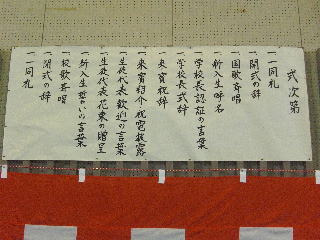 式次第
一一同礼
一開式の辞
一国歌斉唱
一新入生呼名
一学校長認証の言葉
一学校長式辞
一来賓祝辞
一来賓紹介祝電披露
一生徒代表歓迎の言葉
一生徒代表花束の贈呈
一新入生誓いの言葉
一校歌斉唱
一閉式の辞
一一同礼